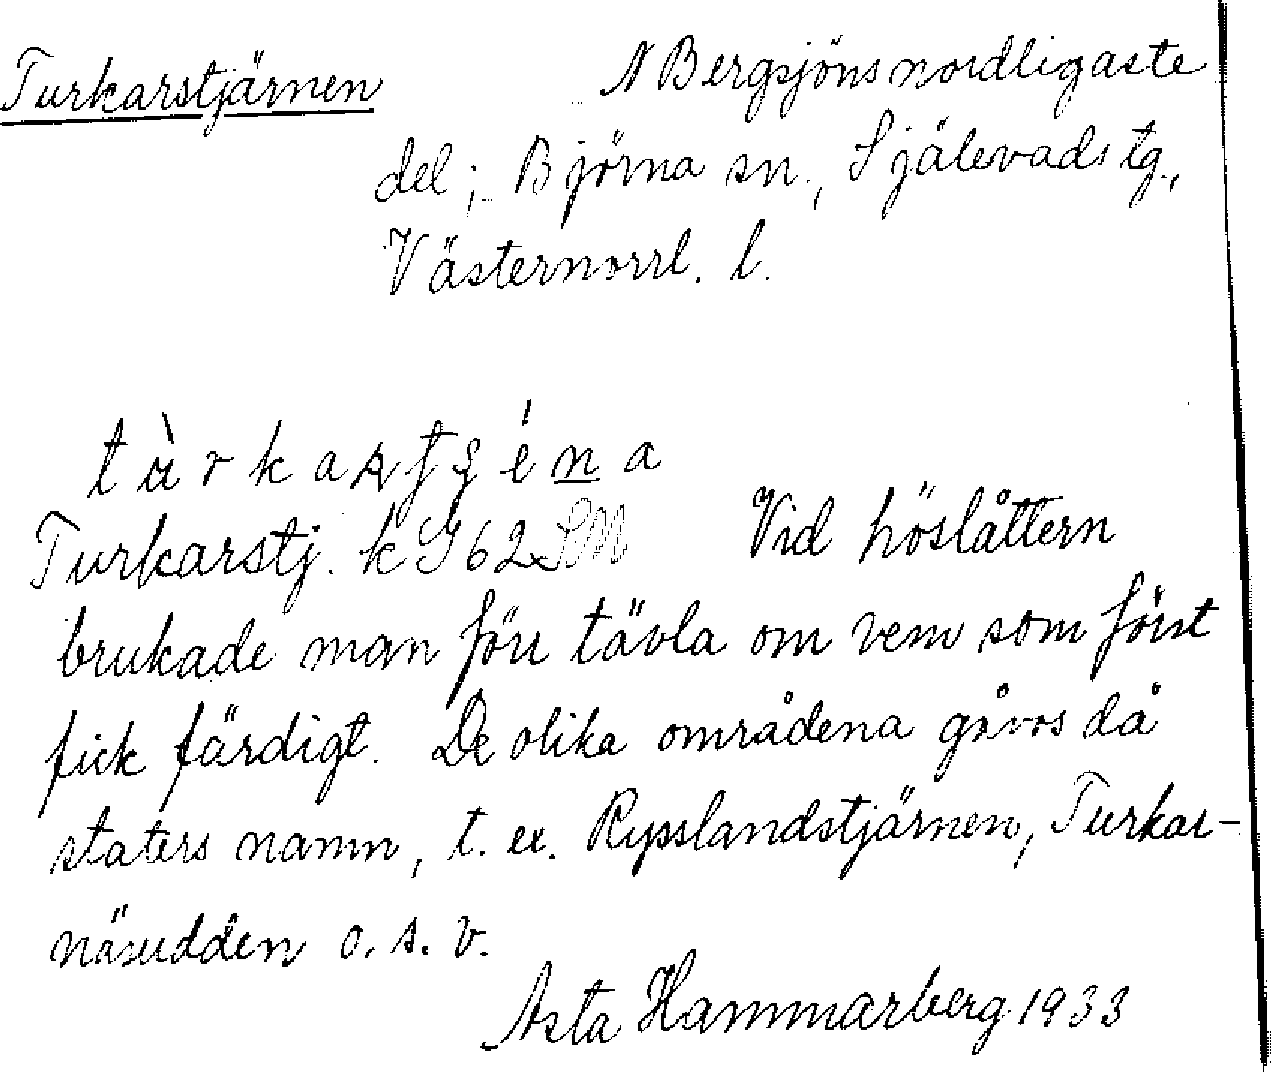 Turkarstjärnen N Bergsjöns nordligaste
del; Björna sn., Själevads tg.,
Västernorrl. l.
Turkarstj. k J62 SM Vid höslåttern
brukade man förr tävla om vem som först
fick färdigt. De olika områdena gåvos då
staters namn, t. ex. Rysslandstjärnen, Turkar-
näsudden o. s. v.
Asta Hammarberg 1933